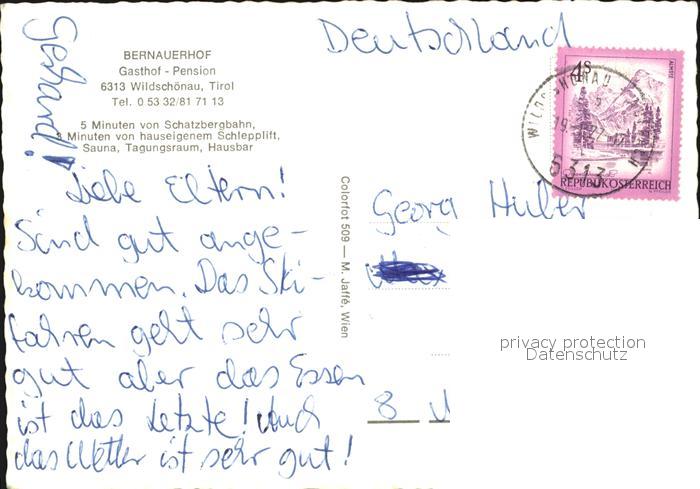 Gerhard!
BERNAUERHOF
Gasthof - Pension
6313 Wildschönau, Tirol
Tel. 0 53 32/81 71 13
5 Minuten von Schatzbergbahn,
3 Minuten von hauseigenem Schlepplift,
Sauna, Tagungsraum, Hausbar
Liebe Eltern!
Sind gut ange-
kommen. Das Ski-
fahren geht sehr
gut aber das Essen
ist das Letzte! Auch
das Wetter ist sehr gut!
Colorfot 509 — M. Jaffé, Wien
Deutschland
4S
ALMSEE
REPUBLIK ÖSTERREICH
6313
Georg Huber
8
privacy protection
Datenschutz